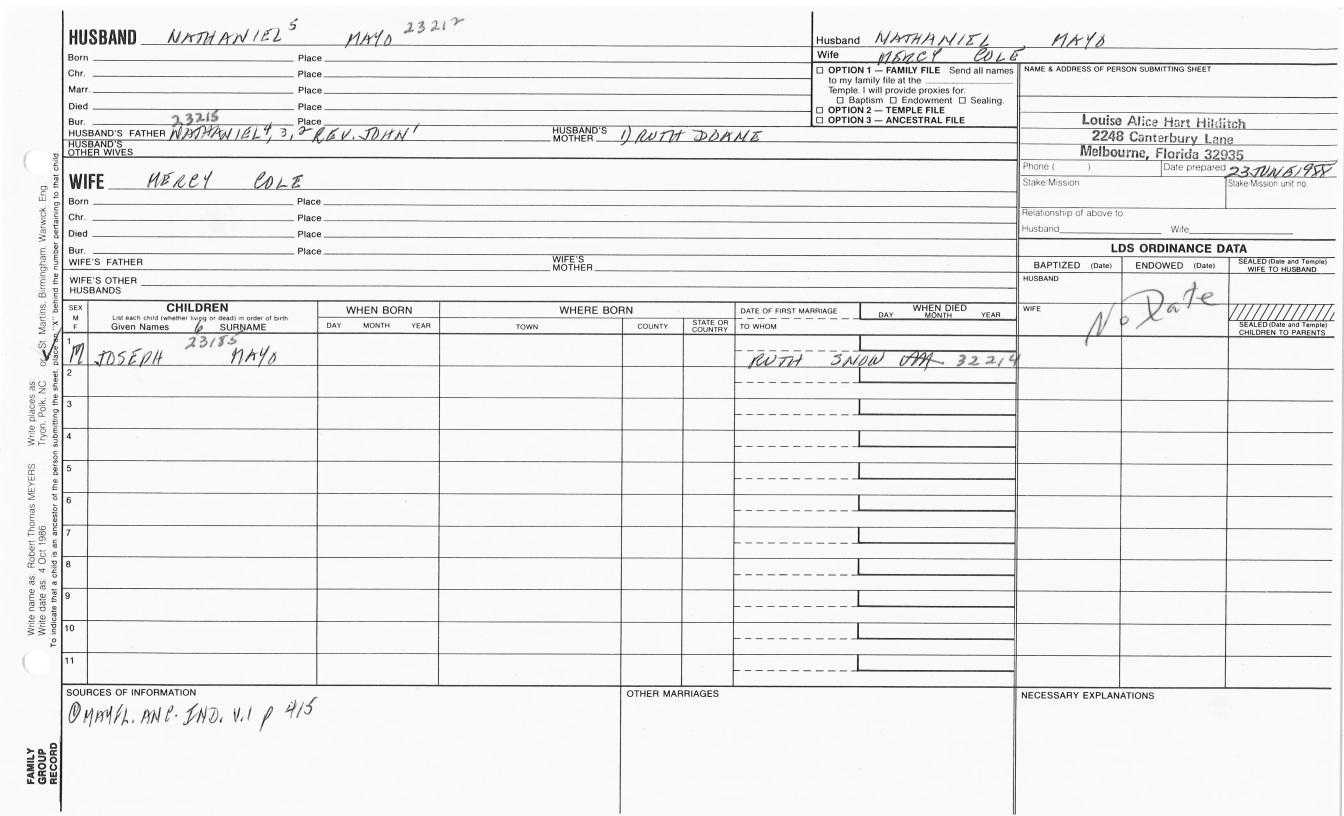 HUSBAND NATHANIEL 5 MAYO 23212
Born Place
Chr. Place
Marr. Place
Died Place
Bur. Place
23215
HUSBAND'S FATHER NATHANIEL 4, 3, 2 REV. JOHN 1 HUSBAND'S MOTHER 1) RUTH DOANE
HUSBAND'S OTHER WIVES
WIFE MERCY COLE
Born Place
Chr. Place
Died Place
Bur. Place
WIFE'S FATHER WIFE'S MOTHER
WIFE'S OTHER HUSBANDS
Husband NATHANIEL MAYO
Wife MERCY COLE
☐ OPTION 1 — FAMILY FILE Send all names
to my family file at the
Temple. I will provide proxies for:
☐ Baptism ☐ Endowment ☐ Sealing.
☐ OPTION 2 — TEMPLE FILE
☐ OPTION 3 — ANCESTRAL FILE
NAME & ADDRESS OF PERSON SUBMITTING SHEET
Louise Alice Hart Hilditch
2248 Canterbury Lane
Melbourne, Florida 32935
Phone ( ) Date prepared 23 JUNE 1988
Stake/Mission Stake/Mission unit no.
Relationship of above to:
Husband Wife
LDS ORDINANCE DATA
BAPTIZED (Date) ENDOWED (Date) SEALED (Date and Temple) WIFE TO HUSBAND
HUSBAND
WIFE
No Date
SEALED (Date and Temple) CHILDREN TO PARENTS
SEX M F
CHILDREN
List each child (whether living or dead) in order of birth
Given Names 6 SURNAME
WHEN BORN
DAY MONTH YEAR
WHERE BORN
TOWN COUNTY STATE OR COUNTRY
DATE OF FIRST MARRIAGE
TO WHOM
WHEN DIED
DAY MONTH YEAR
1 M JOSEPH 23185 MAYO RUTH SNOW 32214
2
3
4
5
6
7
8
9
10
11
SOURCES OF INFORMATION
① MAYFL. ANC. IND. V.1 p 415
OTHER MARRIAGES
NECESSARY EXPLANATIONS
Write name as: Robert Thomas MEYERS Write places as: Tryon, Polk, NC or St. Martins, Birmingham, Warwick, Eng
Write date as: 4 Oct 1986
To indicate that a child is an ancestor of the person submitting the sheet, place an "X" behind the number pertaining to that child.
FAMILY
GROUP
RECORD